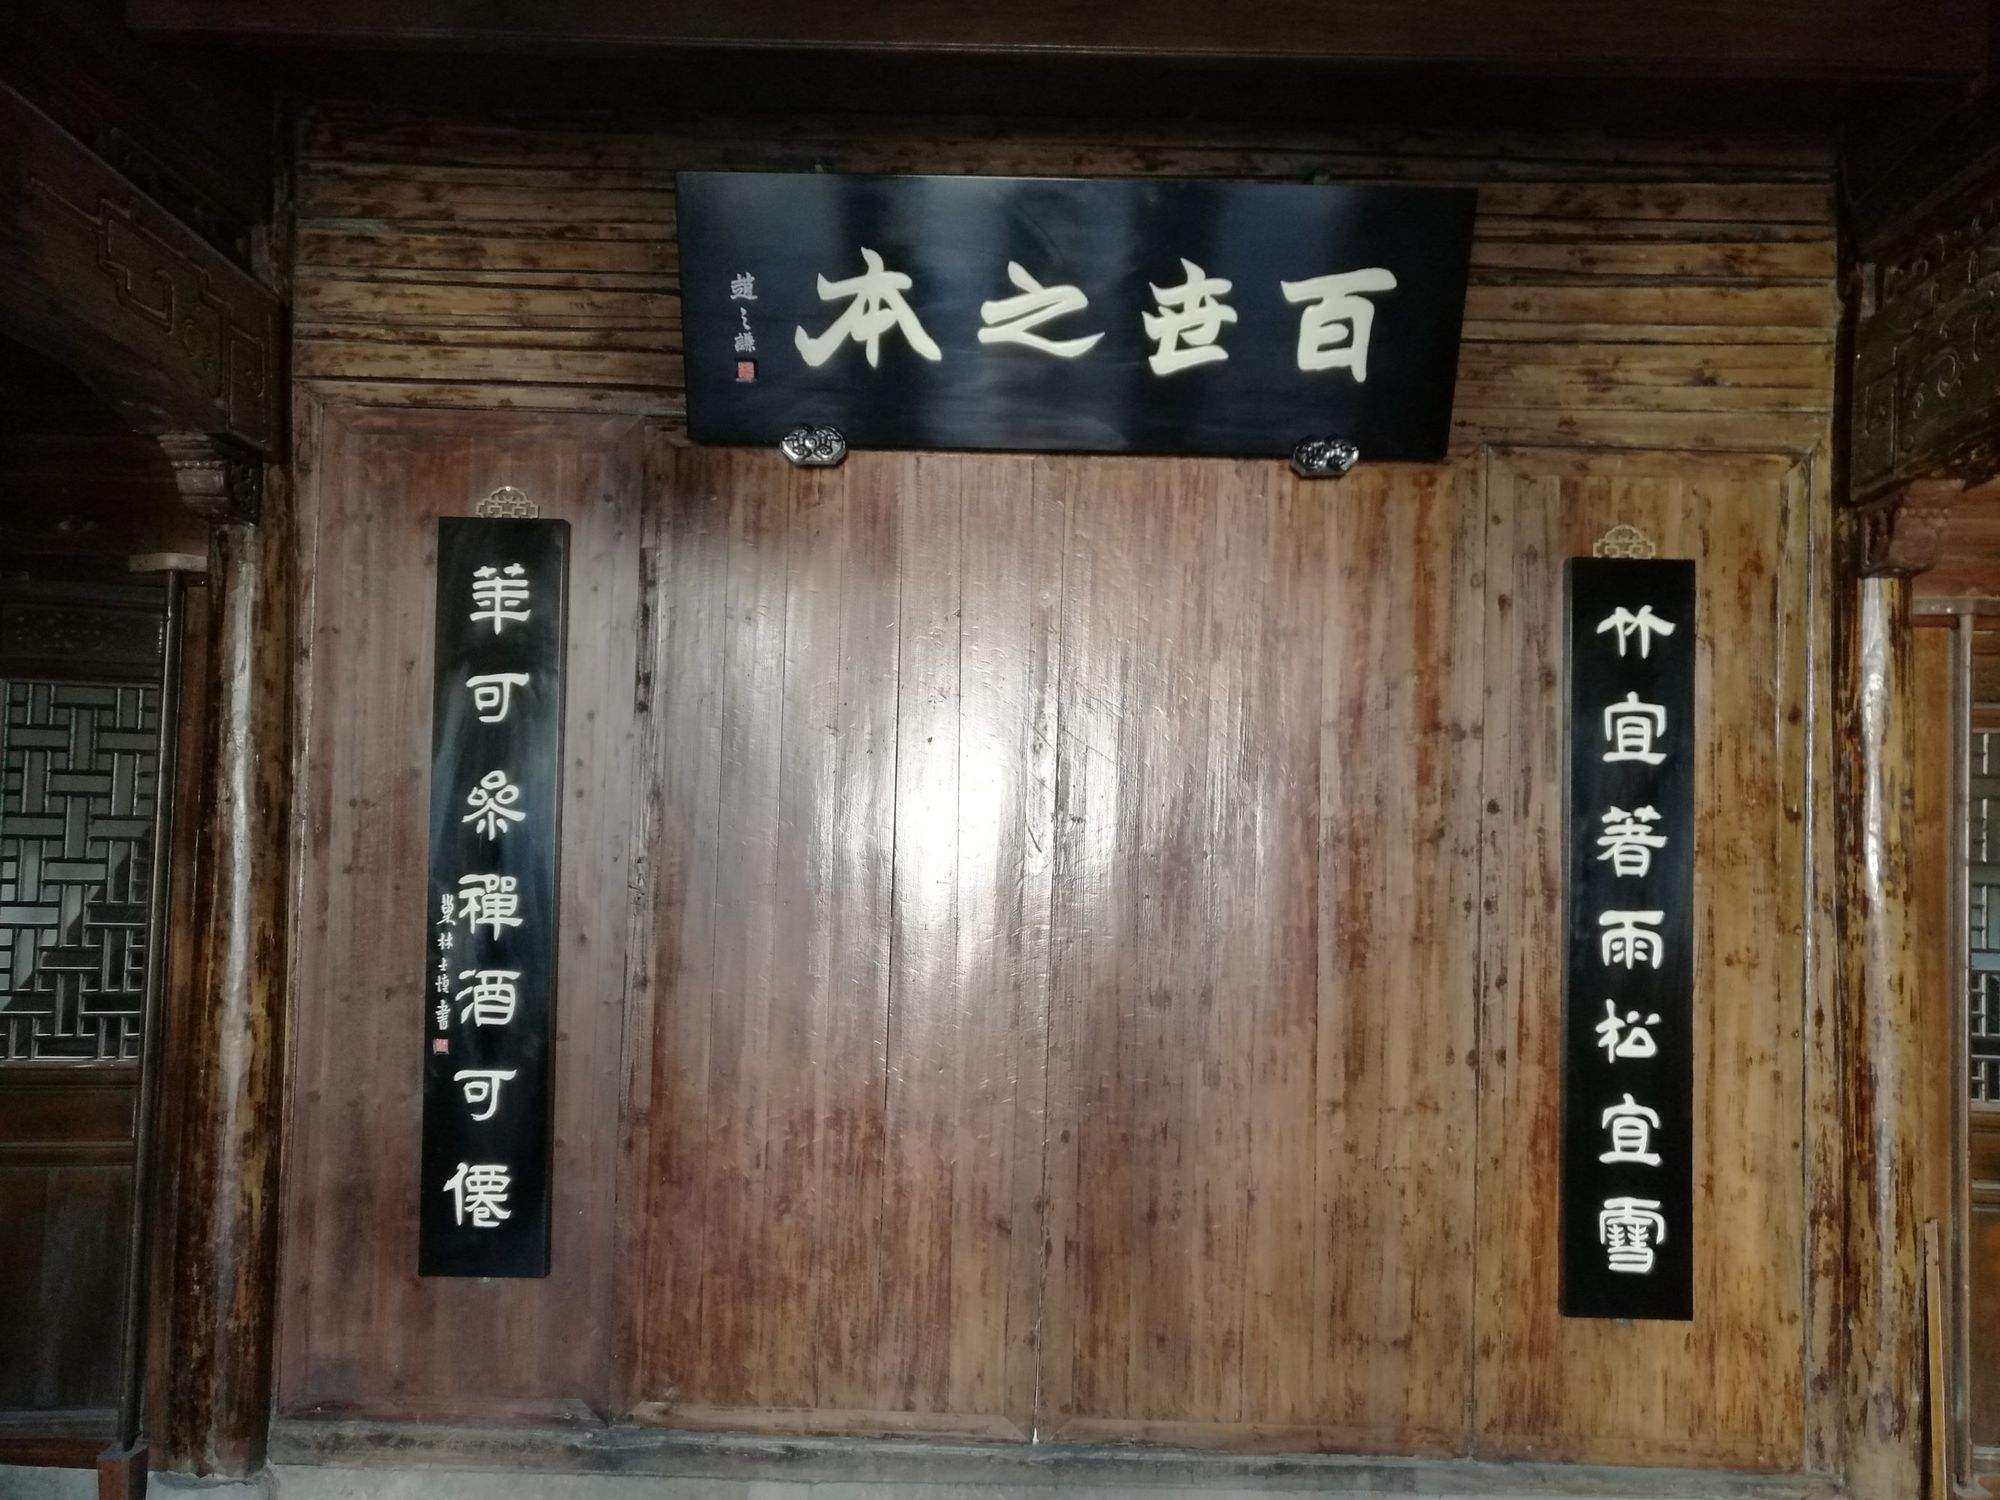 百世之本
趙之謙
竹宜著雨松宜雪
華可參禪酒可僊
巢林士慎書